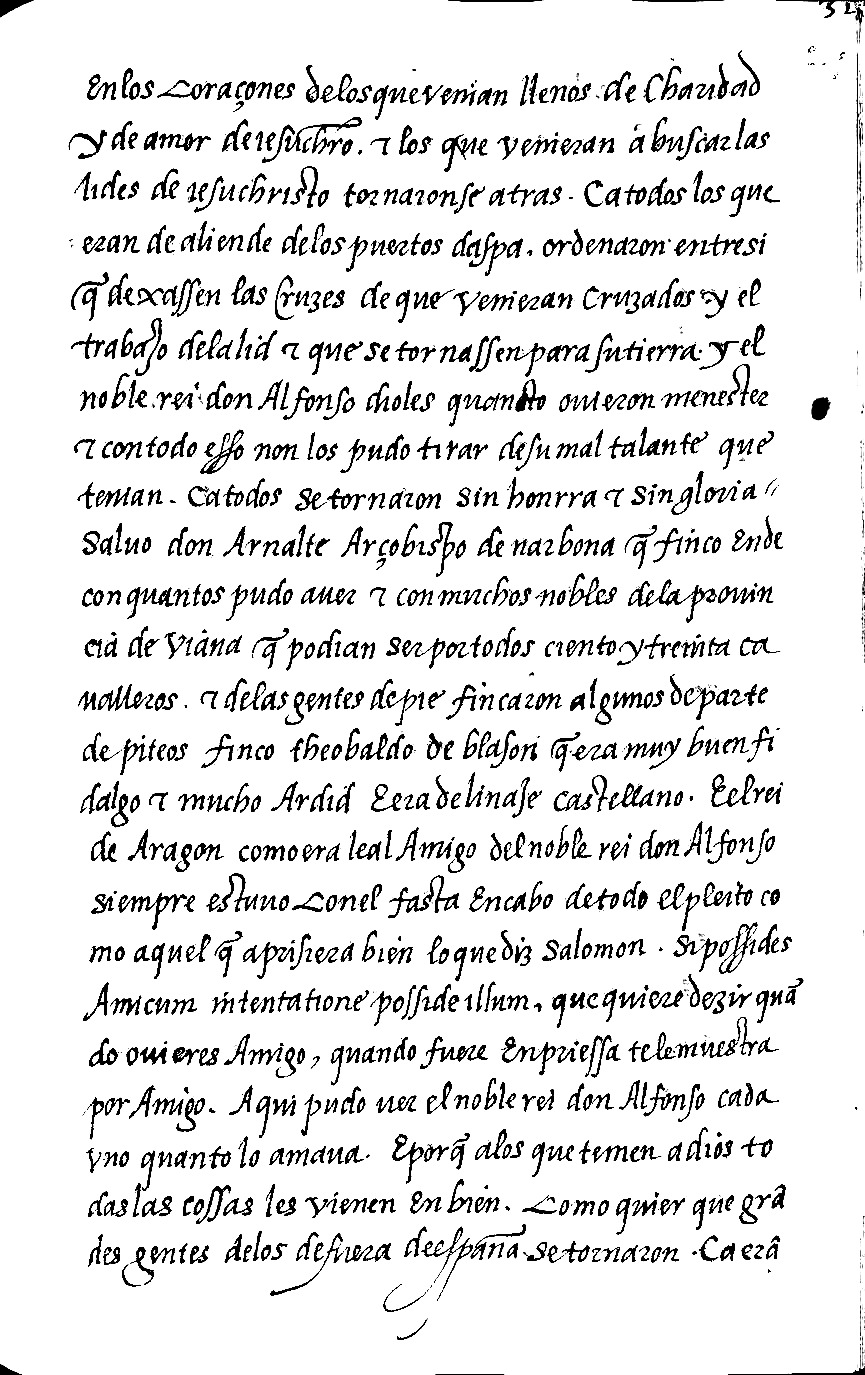 32
En los Coraçones delos que venian llenos de Charidad
y de amor de iesuchro. & los que venieran á buscar las
lides de iesuchristo tornaronse atras. Ca todos los que
eran de aliende delos puertos daspa. ordenaron entresi
q̃ dexassen las Cruzes de que venieran Cruzados y el
trabajo dela lid & que se tornassen para su tierra. y el
noble rei don Alfonso dioles quanto ouieron menester
& con todo esso non los pudo tirar de su mal talante que
tenian. Ca todos se tornaron sin honrra & sin gloria
Saluo don Arnalte Arçobispo de narbona q̃ finco Ende
con quantos pudo auer & con muchos nobles dela prouin
cia de Viana q̃ podian ser por todos ciento y treinta ca
ualleros. & delas gentes de pie fincaron algunos de parte
de piteos finco theobaldo de blason q̃ era muy buen fi
dalgo & mucho Ardid E era de linaje castellano. E el rei
de Aragon como era leal Amigo del noble rei don Alfonso
siempre estuuo Con el fasta En cabo de todo el pleito co
mo aquel q̃ aprisiera bien lo que diz Salomon. Si possides
Amicum in tentatione posside illum, que quiere dezir quã
do ouieres Amigo, quando fuere En priessa te le muestra
por Amigo. Aqui pudo uer el noble rei don Alfonso cada
vno quanto lo amaua. E porq̃ alos que temen a dios to
das las cossas les vienen En bien. Como quier que grã
des gentes delos de fuera de españa se tornaron. Ca erã